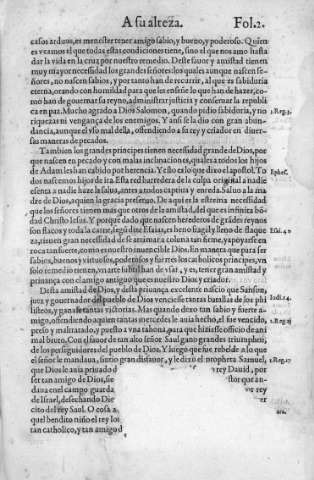 A su alteza. Fol.2.
casos arduos, es menester tener amigo sabio, y bueno, y poderoso. Quien
es veamos el que todas estas condiciones tiene, sino el que nos amo hasta
dar la vida en la cruz por nuestro remedio. Deste fauor y amistad tienen
muy mayor necessidad los grandes señores: los quales aunque nascen se-
ñores, no nascen sabios, y por tanto han de recurrir, al que es sabiduria
eterna, orando con humildad para que les enseñe lo que han de hazer, co-
mo han de gouernar su reyno, administrar justicia y conseruar la republi
ca en paz. Mucho agrado a Dios Salomon, quando pidio sabiduria, y no
riquezas ni vengança de los enemigos. Y ansi se la dio con gran abun-
dancia, aunque el vso mal della, offendiendo a su rey y criador en diuer-
sas maneras de pecados.
3.Reg.3.
Tambien los grandes principes tienen necessidad grande de Dios, por
que nascen en pecado y con malas inclinaciones, quales a todos los hijos
de Adam les han cabido por herencia. Y esto es lo que dixo el apostol. To
dos nascemos hijos de ira. Esta red barredera de la culpa original a nadie
Ephes.
esenta a nadie haze la salua, antes a todos captiua y enreda. Saluo a la ma
dre de Dios, a quien la gracia preseruo. De aqui es la estrema necessidad
que los señores tienen mas que otros de le amistad, del que es infinita bõ-
dad Christo Iesus. Y porque dado que nascen herederos de grãdes reynos
son flacos y toda la carne, segũ dize Esaias, es heno fragil y lleno de flaque
Esai.40
za, tienen gran necessidad de se arrimar a coluna tan firme, y apoyarse en
roca tan fuerte, como es nuestro inuencible Dios. En manera que para ser
sabios, buenos y virtuosos, poderosos y fuertes los catholicos principes, vn
solo remedio tienen, vn arte subtil han de vsar, y es, tener gran amistad y
priuança con el amigo antiguo que es nuestro Dios y criador.
Desta amistad de Dios, y desta priuança excelente nascio que Sanson,
juez y gouernador del pueblo de Dios venciesse tantas batallas de los phi
Iudi.14.
listeos, y ganasse tantas victorias. Mas quando dexo tan sabio y fuerte a-
migo, offendiendo a quien tantas mercedes le auia hecho, el fue vencido,
1.Reg.15
preso y maltratado, y puesto a vna tahona, para que hiziesse officio de ani
mal bruto. Con el fauor de tan alto señor Saul gano grandes triumphos,
de los perseguidores del pueblo de Dios. Y luego que fue rebelde a lo que
el señor le mandaua, surtio gran disfauor, y le dixo el propheta Samuel,
1.Reg.17
que Dios le auia priuado d
y rey Dauid, por
ser tan amigo de Dios, sie
stor que an-
daua en el campo guarda
or rey
de Israel, desechando Die
cito del rey Saul. O cosa a
quel bendito niño el rey los
tan catholico, y tan amigo d